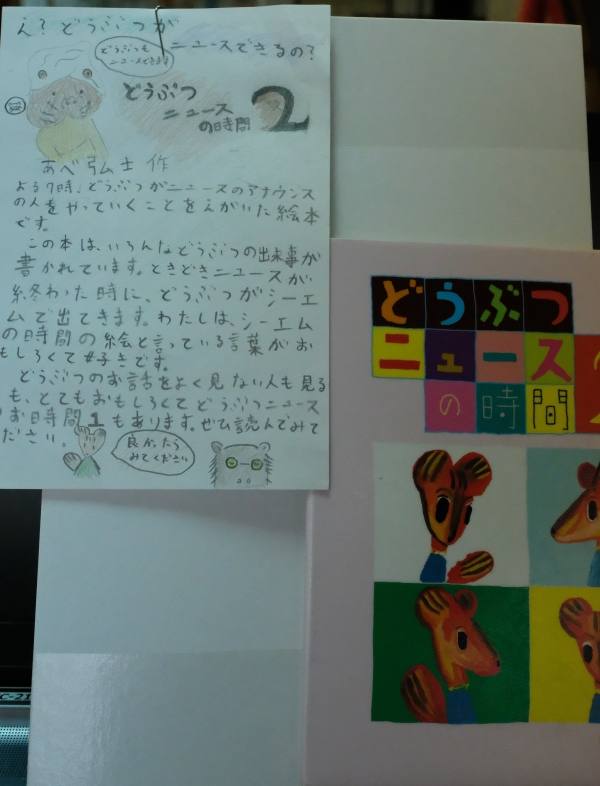 え?どうぶつが
ニュースできるの?
どうぶつも
ニュースできます
どうぶつ
ニュース
の時間
2
あべ弘士 作
よる7時、どうぶつがニュースのアナウンス
の人をやっていくことをえがいた絵本
です。
この本は、いろんなどうぶつの出来事が
書かれています。ときどきニュースが
終わった時に、どうぶつがシーエ
ムで出てきます。わたしは、シーエム
の時間の絵と言っている言葉がお
もしろくて好きです。
どうぶつのお話をよく見ない人も見る
も、とてもおもしろくてどうぶつニュース
お時間1もあります。ぜひ読んでみて
ださい。
良かったら
みてください
どうぶつ
ニュース
の時間
2